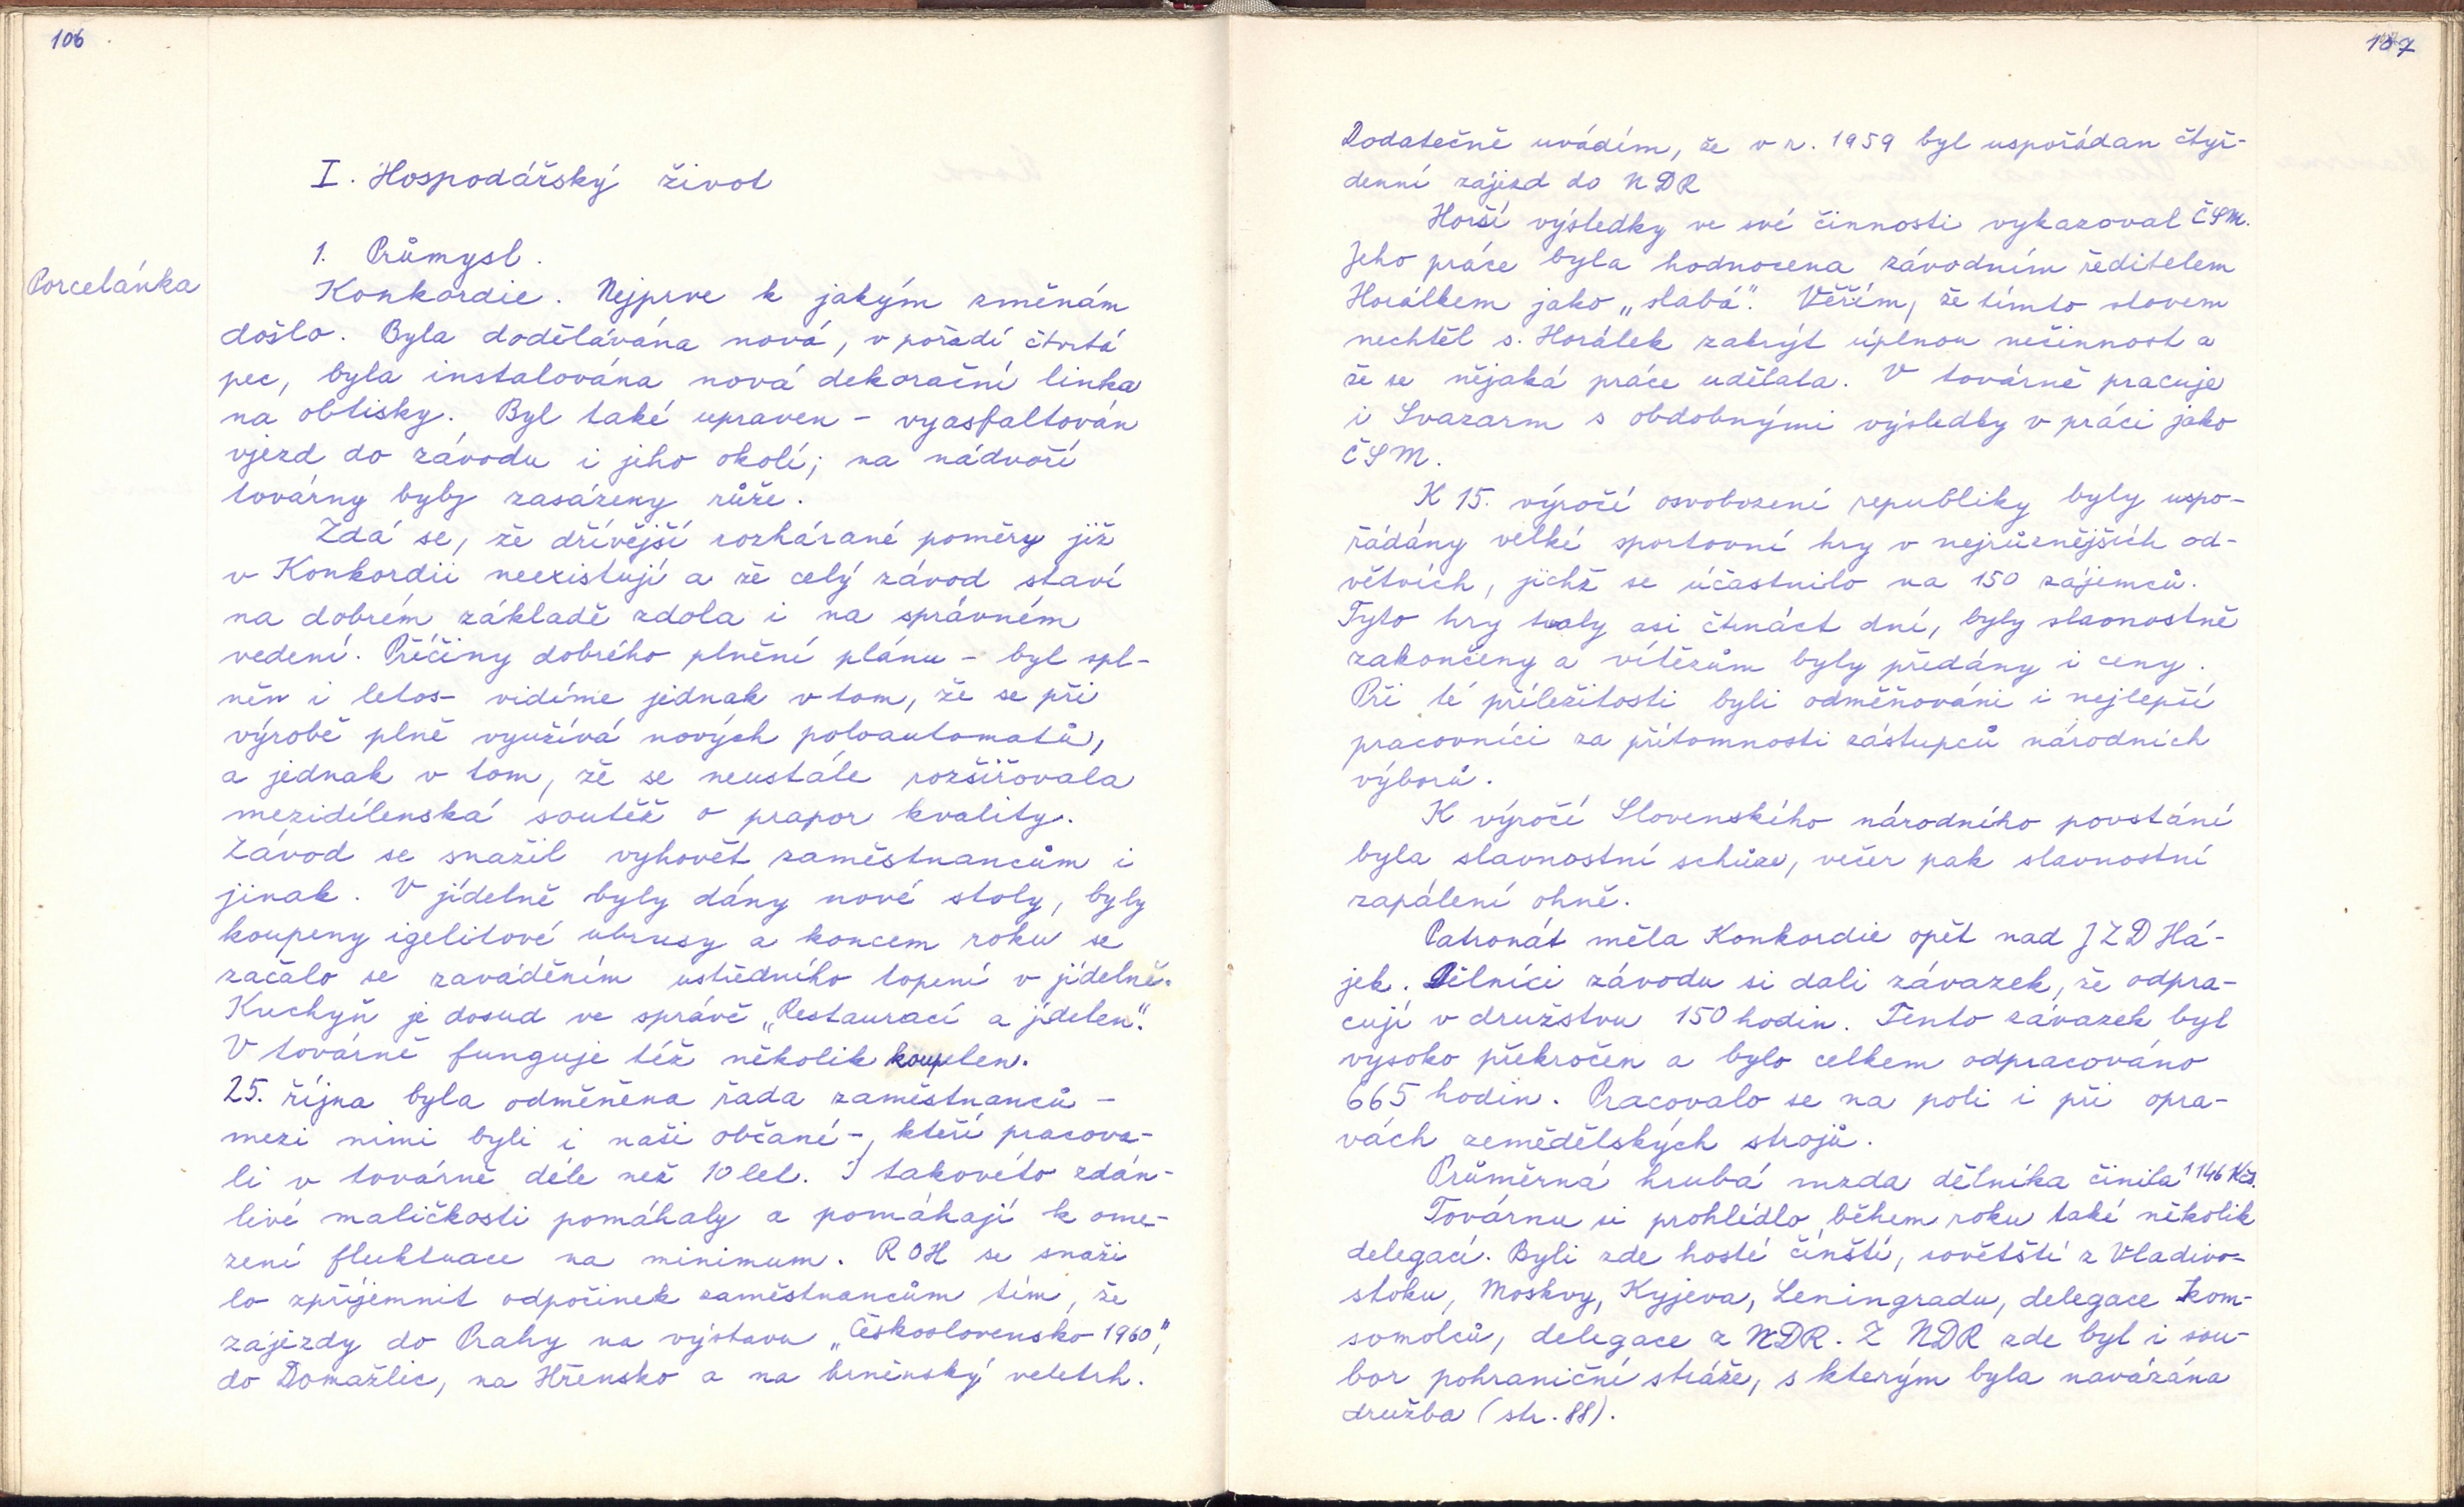 106
I. Hospodářský život
1. Průmysl.
Porcelánka
Konkordie. Nejprve k jakým změnám
došlo. Byla dodělávána nová, v pořadí čtvrtá
pec, byla instalována nová dekorační linka
na obtisky. Byl také upraven - vyasfaltován
vjezd do závodu i jeho okolí; na nádvoří
továrny byly zasázeny růže.
Zdá se, že dřívější rozhárané poměry již
v Konkordii neexistují a že celý závod staví
na dobrém základě zdola i na správném
vedení. Příčiny dobrého plnění plánu - byl spl-
něn i letos - vidíme jednak v tom, že se při
výrobě plně využívá nových poloautomatů,
a jednak v tom, že se neustále rozšiřovala
mezidílenská soutěž o prapor kvality.
Závod se snažil vyhovět zaměstnancům i
jinak. V jídelně byly dány nové stoly, byly
koupeny igelitové ubrusy a koncem roku se
začalo se zaváděním ustředního topení v jídelně.
Kuchyň je dosud ve správě „Restaurací a jídelen".
V továrně funguje též několik koupelen.
25. října byla odměněna řada zaměstnanců -
mezi nimi byli i naši občané -, kteří pracova-
li v továrně déle než 10 let. I takovéto zdán-
livé maličkosti pomáhaly a pomáhají k ome-
zení fluktuace na minimum. ROH se snaži
lo zpříjemnit odpočinek zaměstnancům tím, že
zájezdy do Prahy na výstavu „Československo 1960",
do Domažlic, na Hřensko a na brněnský veletrh.
107
Dodatečně uvádím, že v r. 1959 byl uspořádan čtyř-
denní zájezd do NDR
Horší výsledky ve své činnosti vykazoval ČSM.
Jeho práce byla hodnocena závodním ředitelem
Horálkem jako „slabá". Věřím, že tímto slovem
nechtěl s. Horálek zakrýt úplnou nečinnost a
že se nějaká práce udělala. V továrně pracuje
i Svazarm s obdobnými výsledky v práci jako
ČSM.
K 15. výročí osvobození republiky byly uspo-
řádány velké sportovní hry v nejrůznějších od-
větvích, jichž se účastnilo na 150 zájemců.
Tyto hry trvaly asi čtrnáct dní, byly slavnostně
zakončeny a vítězům byly předány i ceny.
Při té příležitosti byli odměňováni i nejlepší
pracovníci za přítomnosti zástupců národních
výborů.
K výročí Slovenského národního povstání
byla slavnostní schůze, večer pak slavnostní
zapálení ohně.
Patronát měla Konkordie opět nad JZD Há-
jek. Dělníci závodu si dali závazek, že odpra-
cují v družstvu 150 hodin. Tento závazek byl
vysoko překročen a bylo celkem odpracováno
665 hodin. Pracovalo se na poli i při opra-
vách zemědělských strojů.
Průměrná hrubá mzda dělníka činila 1146 Kčs.
Továrnu si prohlédlo během roku také několik
delegací. Byli zde hosté čínští, sovětští z Vladivo-
stoku, Moskvy, Kyjeva, Leningradu, delegace kom-
somolců, delegace z NDR. Z NDR zde byl i sou-
bor pohraniční stráže, s kterým byla navázána
družba (str. 88).